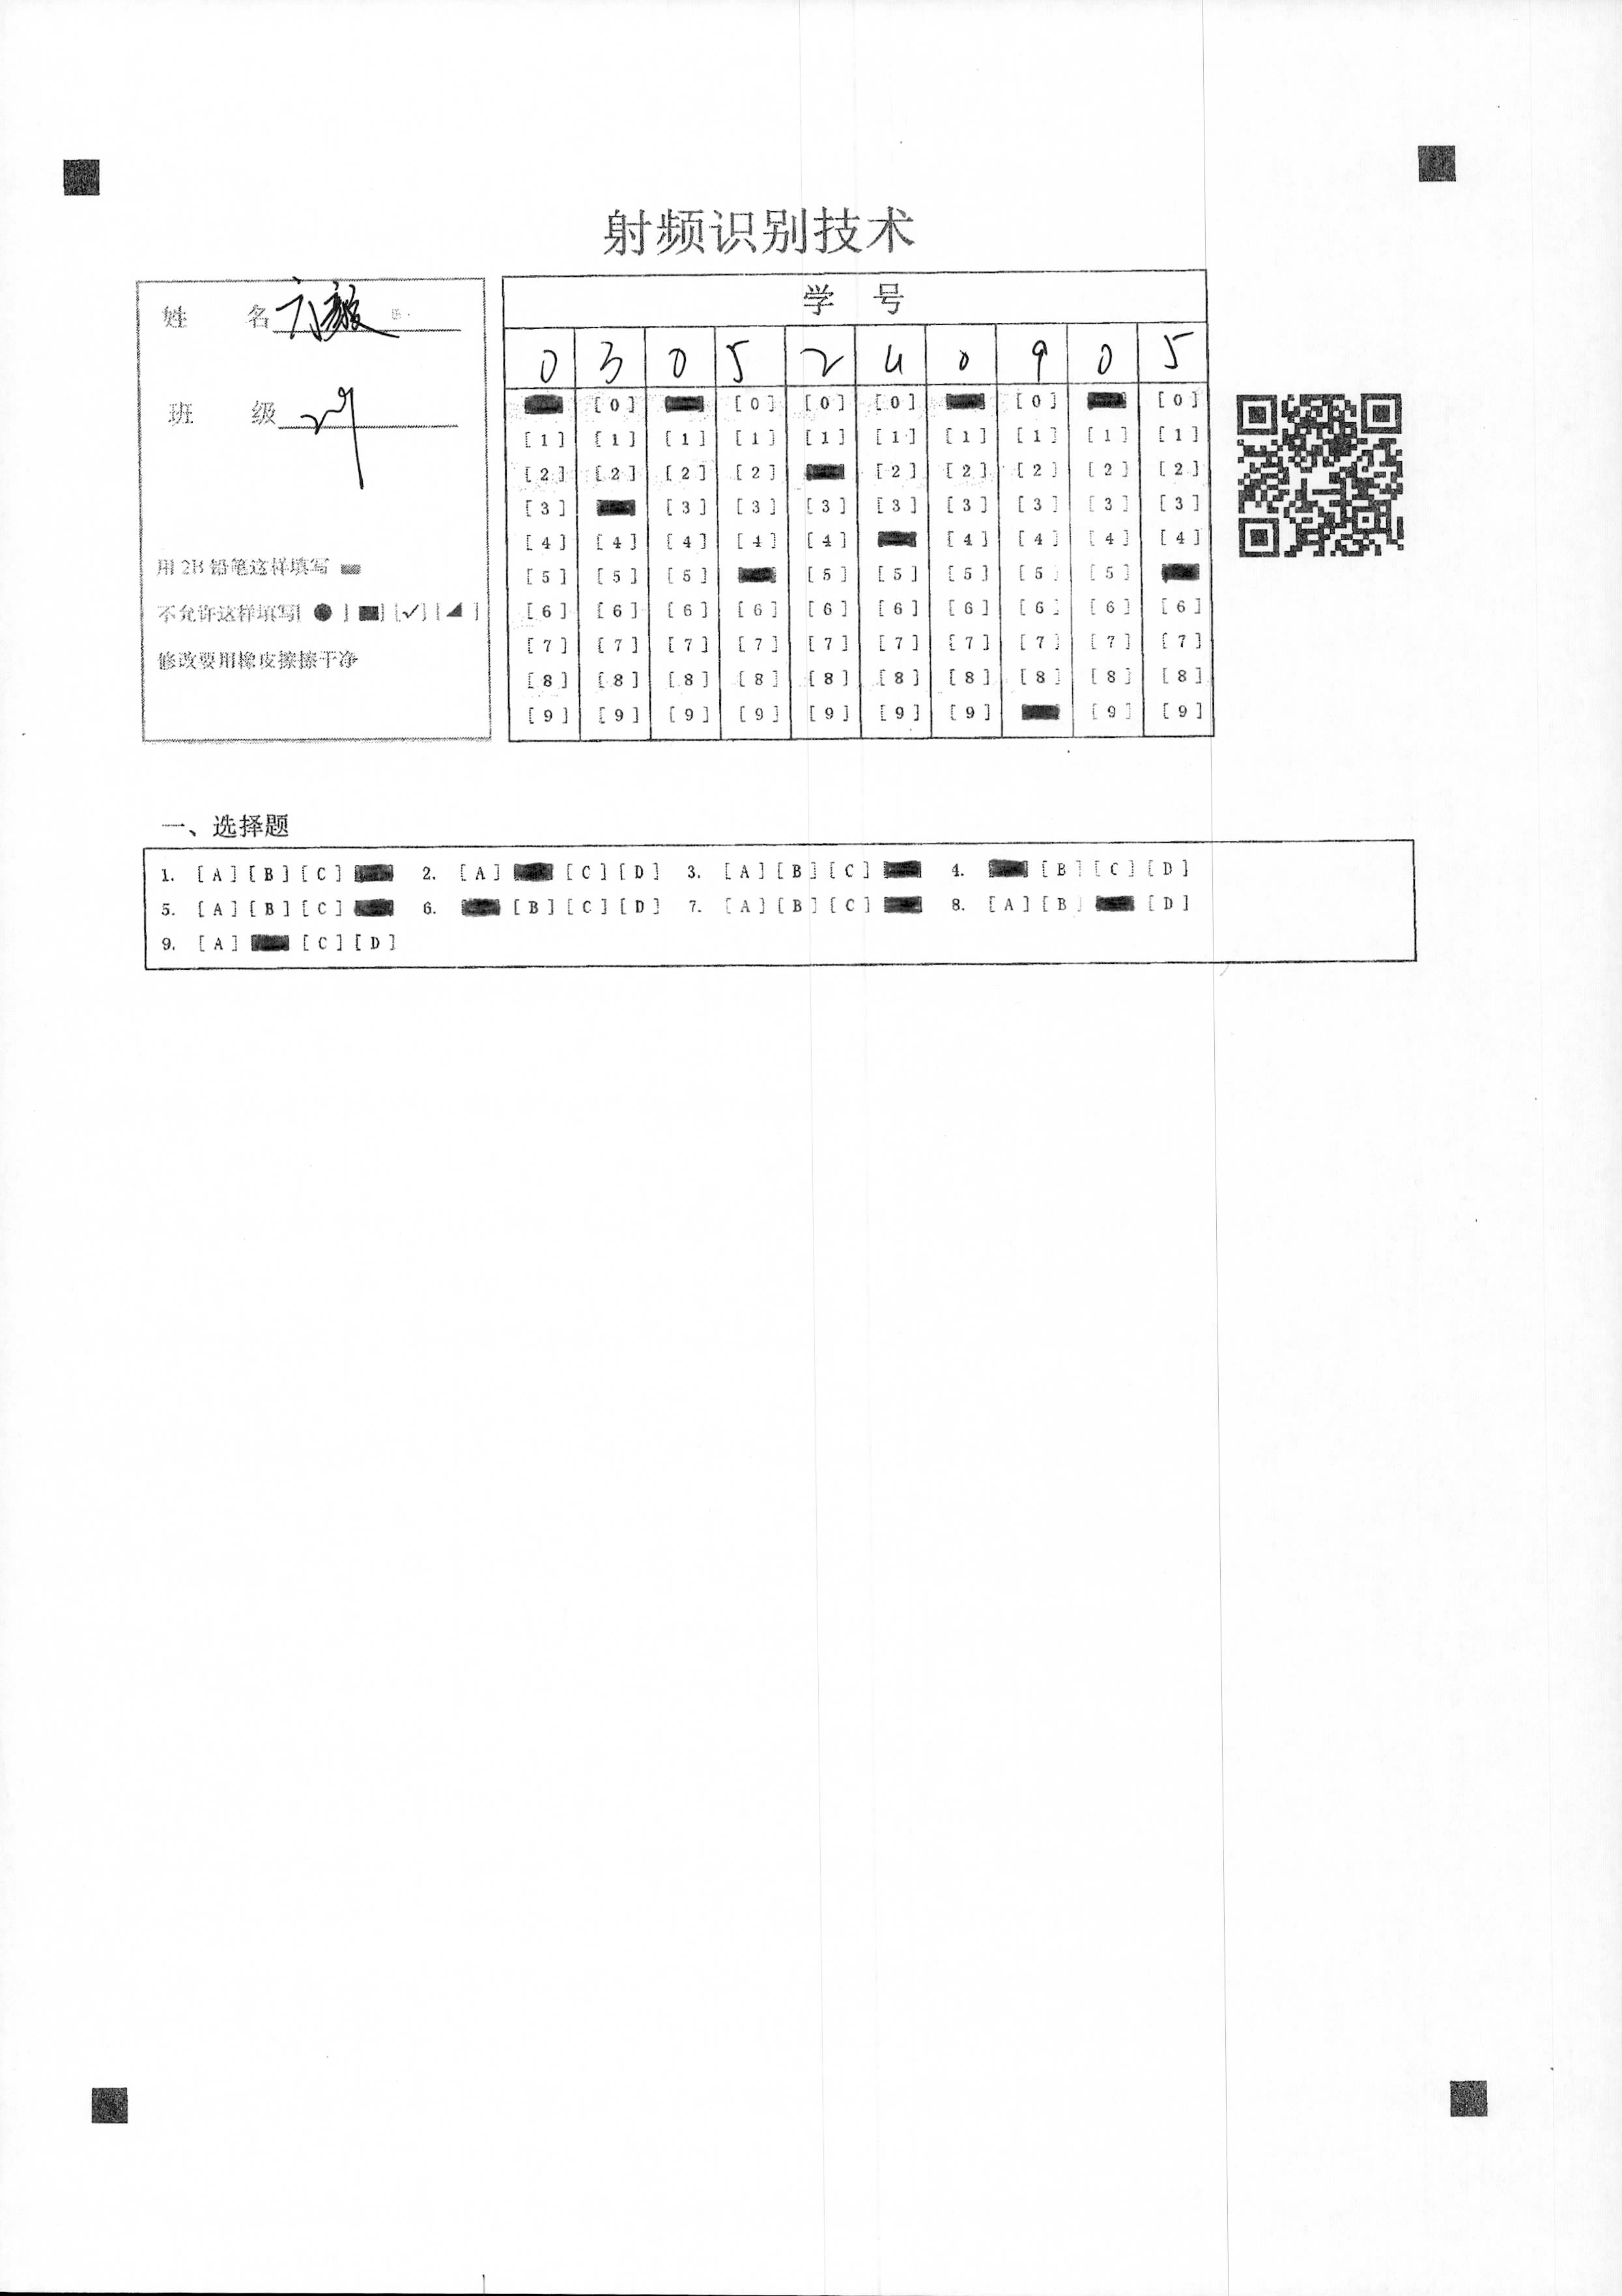 射频识别技术
姓 名
班 级
用 2B 铅笔这样填写
不允许这样填写[ ● ] [■] [✓] [◢ ]
修改要用橡皮擦擦干净
学 号
0 3 0 5 2 4 0 9 0 5
[0] [0] [0] [0] [0] [0]
[1] [1] [1] [1] [1] [1] [1] [1] [1] [1]
[2] [2] [2] [2] [2] [2] [2] [2] [2]
[3] [3] [3] [3] [3] [3] [3] [3] [3]
[4] [4] [4] [4] [4] [4] [4] [4] [4]
[5] [5] [5] [5] [5] [5] [5] [5]
[6] [6] [6] [6] [6] [6] [6] [6] [6] [6]
[7] [7] [7] [7] [7] [7] [7] [7] [7] [7]
[8] [8] [8] [8] [8] [8] [8] [8] [8] [8]
[9] [9] [9] [9] [9] [9] [9] [9] [9]
一、选择题
1. [A] [B] [C] 2. [A] [C] [D] 3. [A] [B] [C] 4. [B] [C] [D]
5. [A] [B] [C] 6. [B] [C] [D] 7. [A] [B] [C] 8. [A] [B] [D]
9. [A] [C] [D]